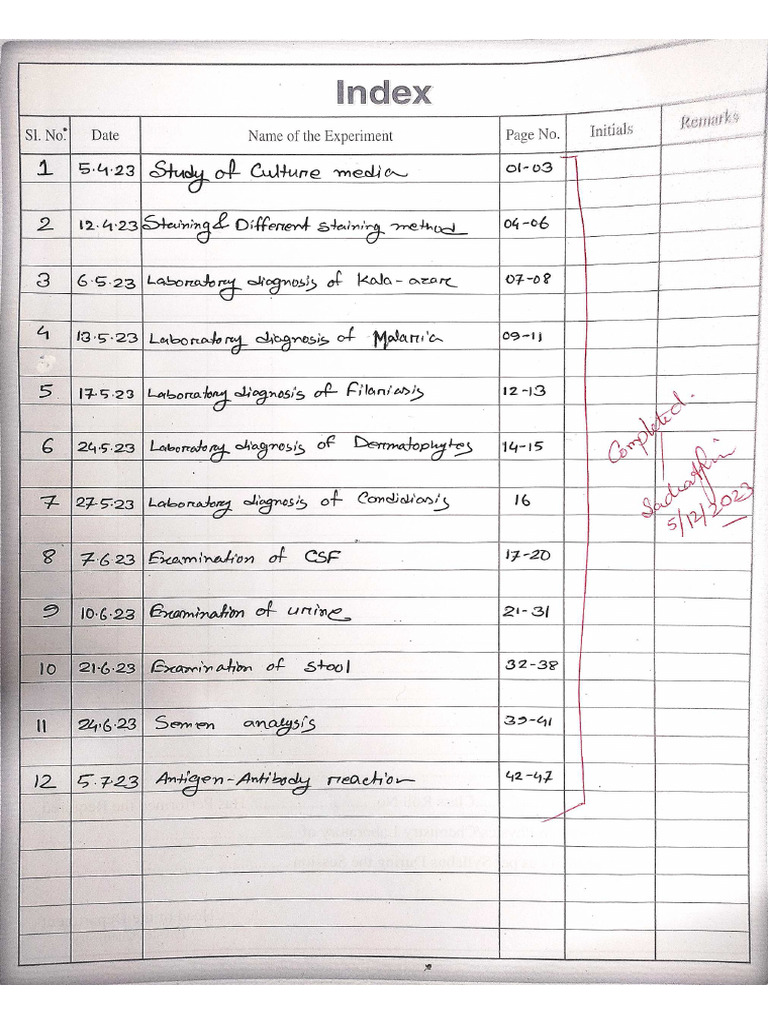 Index
Sl. No. Date Name of the Experiment Page No. Initials Remarks
1 5.4.23 Study of Culture media 01-03
2 12.4.23 Staining & Different staining method 04-06
3 6.5.23 Laboratory diagnosis of Kala-azar 07-08
4 13.5.23 Laboratory diagnosis of Malaria 09-11
5 17.5.23 Laboratory diagnosis of Filariasis 12-13
6 24.5.23 Laboratory diagnosis of Dermatophytes 14-15
7 27.5.23 Laboratory diagnosis of Candidiasis 16
Completed.
5/12/2023
8 7.6.23 Examination of CSF 17-20
9 10.6.23 Examination of urine 21-31
10 21.6.23 Examination of stool 32-38
11 24.6.23 Semen analysis 39-41
12 5.7.23 Antigen-Antibody reaction 42-47